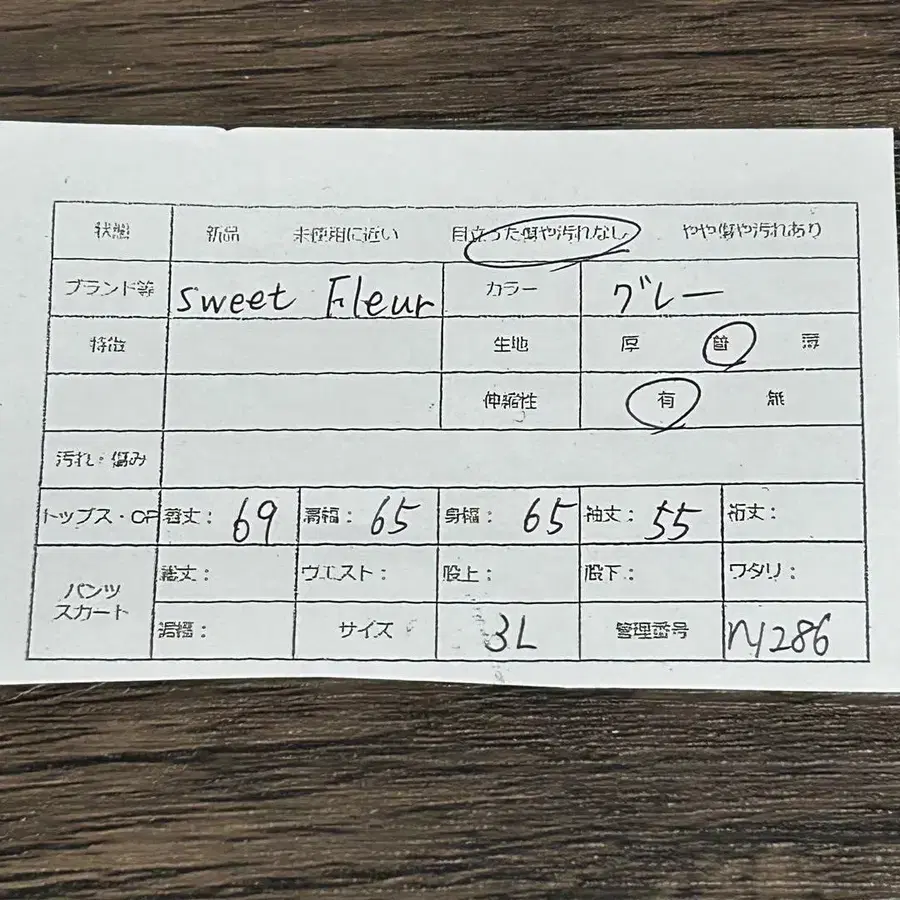 状態 新品 未使用に近い 目立った傷や汚れなし やや傷や汚れあり
ブランド等 sweet Fleur カラー グレー
特徴 生地 厚 普 薄
伸縮性 有 無
汚れ・傷み
トップス・OP 着丈: 69 肩幅: 65 身幅: 65 袖丈: 55 裄丈:
パンツ 総丈: ウエスト: 股上: 股下: ワタリ:
スカート
裾幅: サイズ 3L 管理番号 286